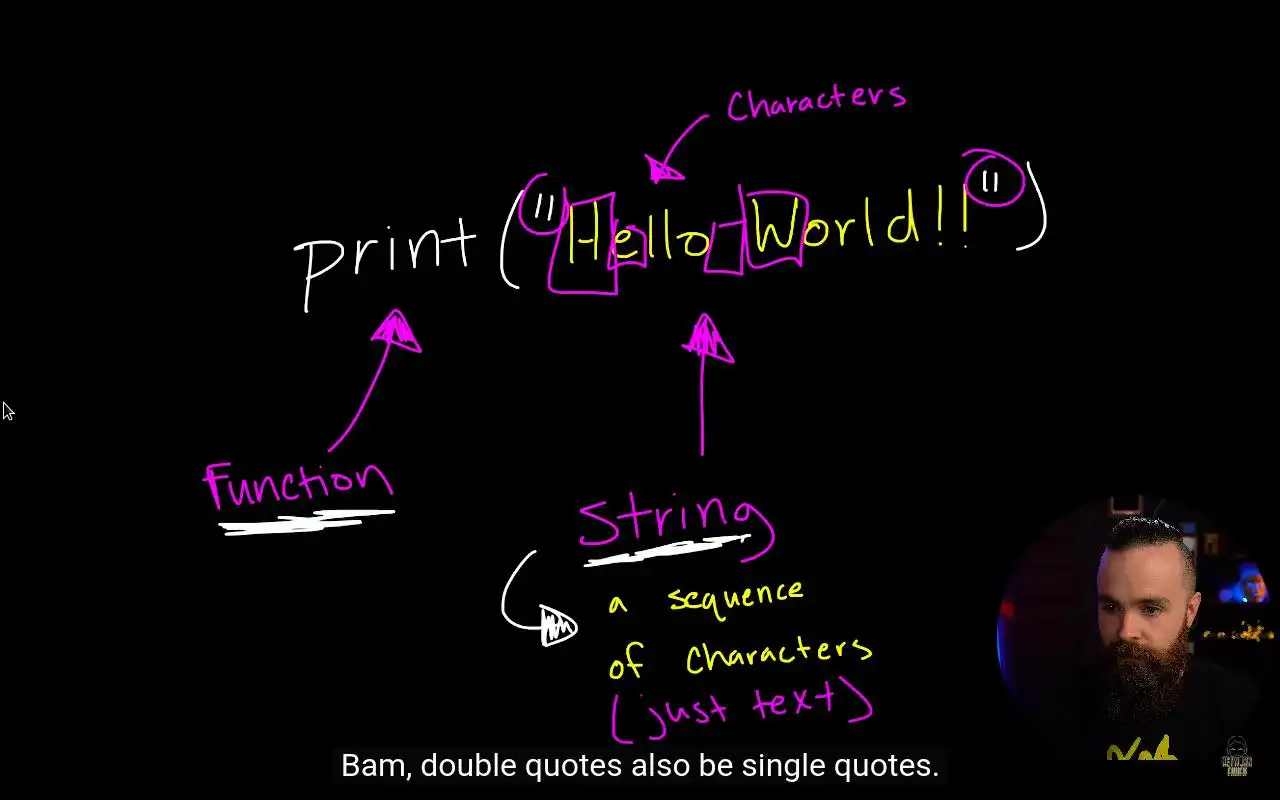 Characters
print ("Hello World!!")
Function
String
a sequence
of characters
(just text)
Bam, double quotes also be single quotes.
NETWORK
CHUCK